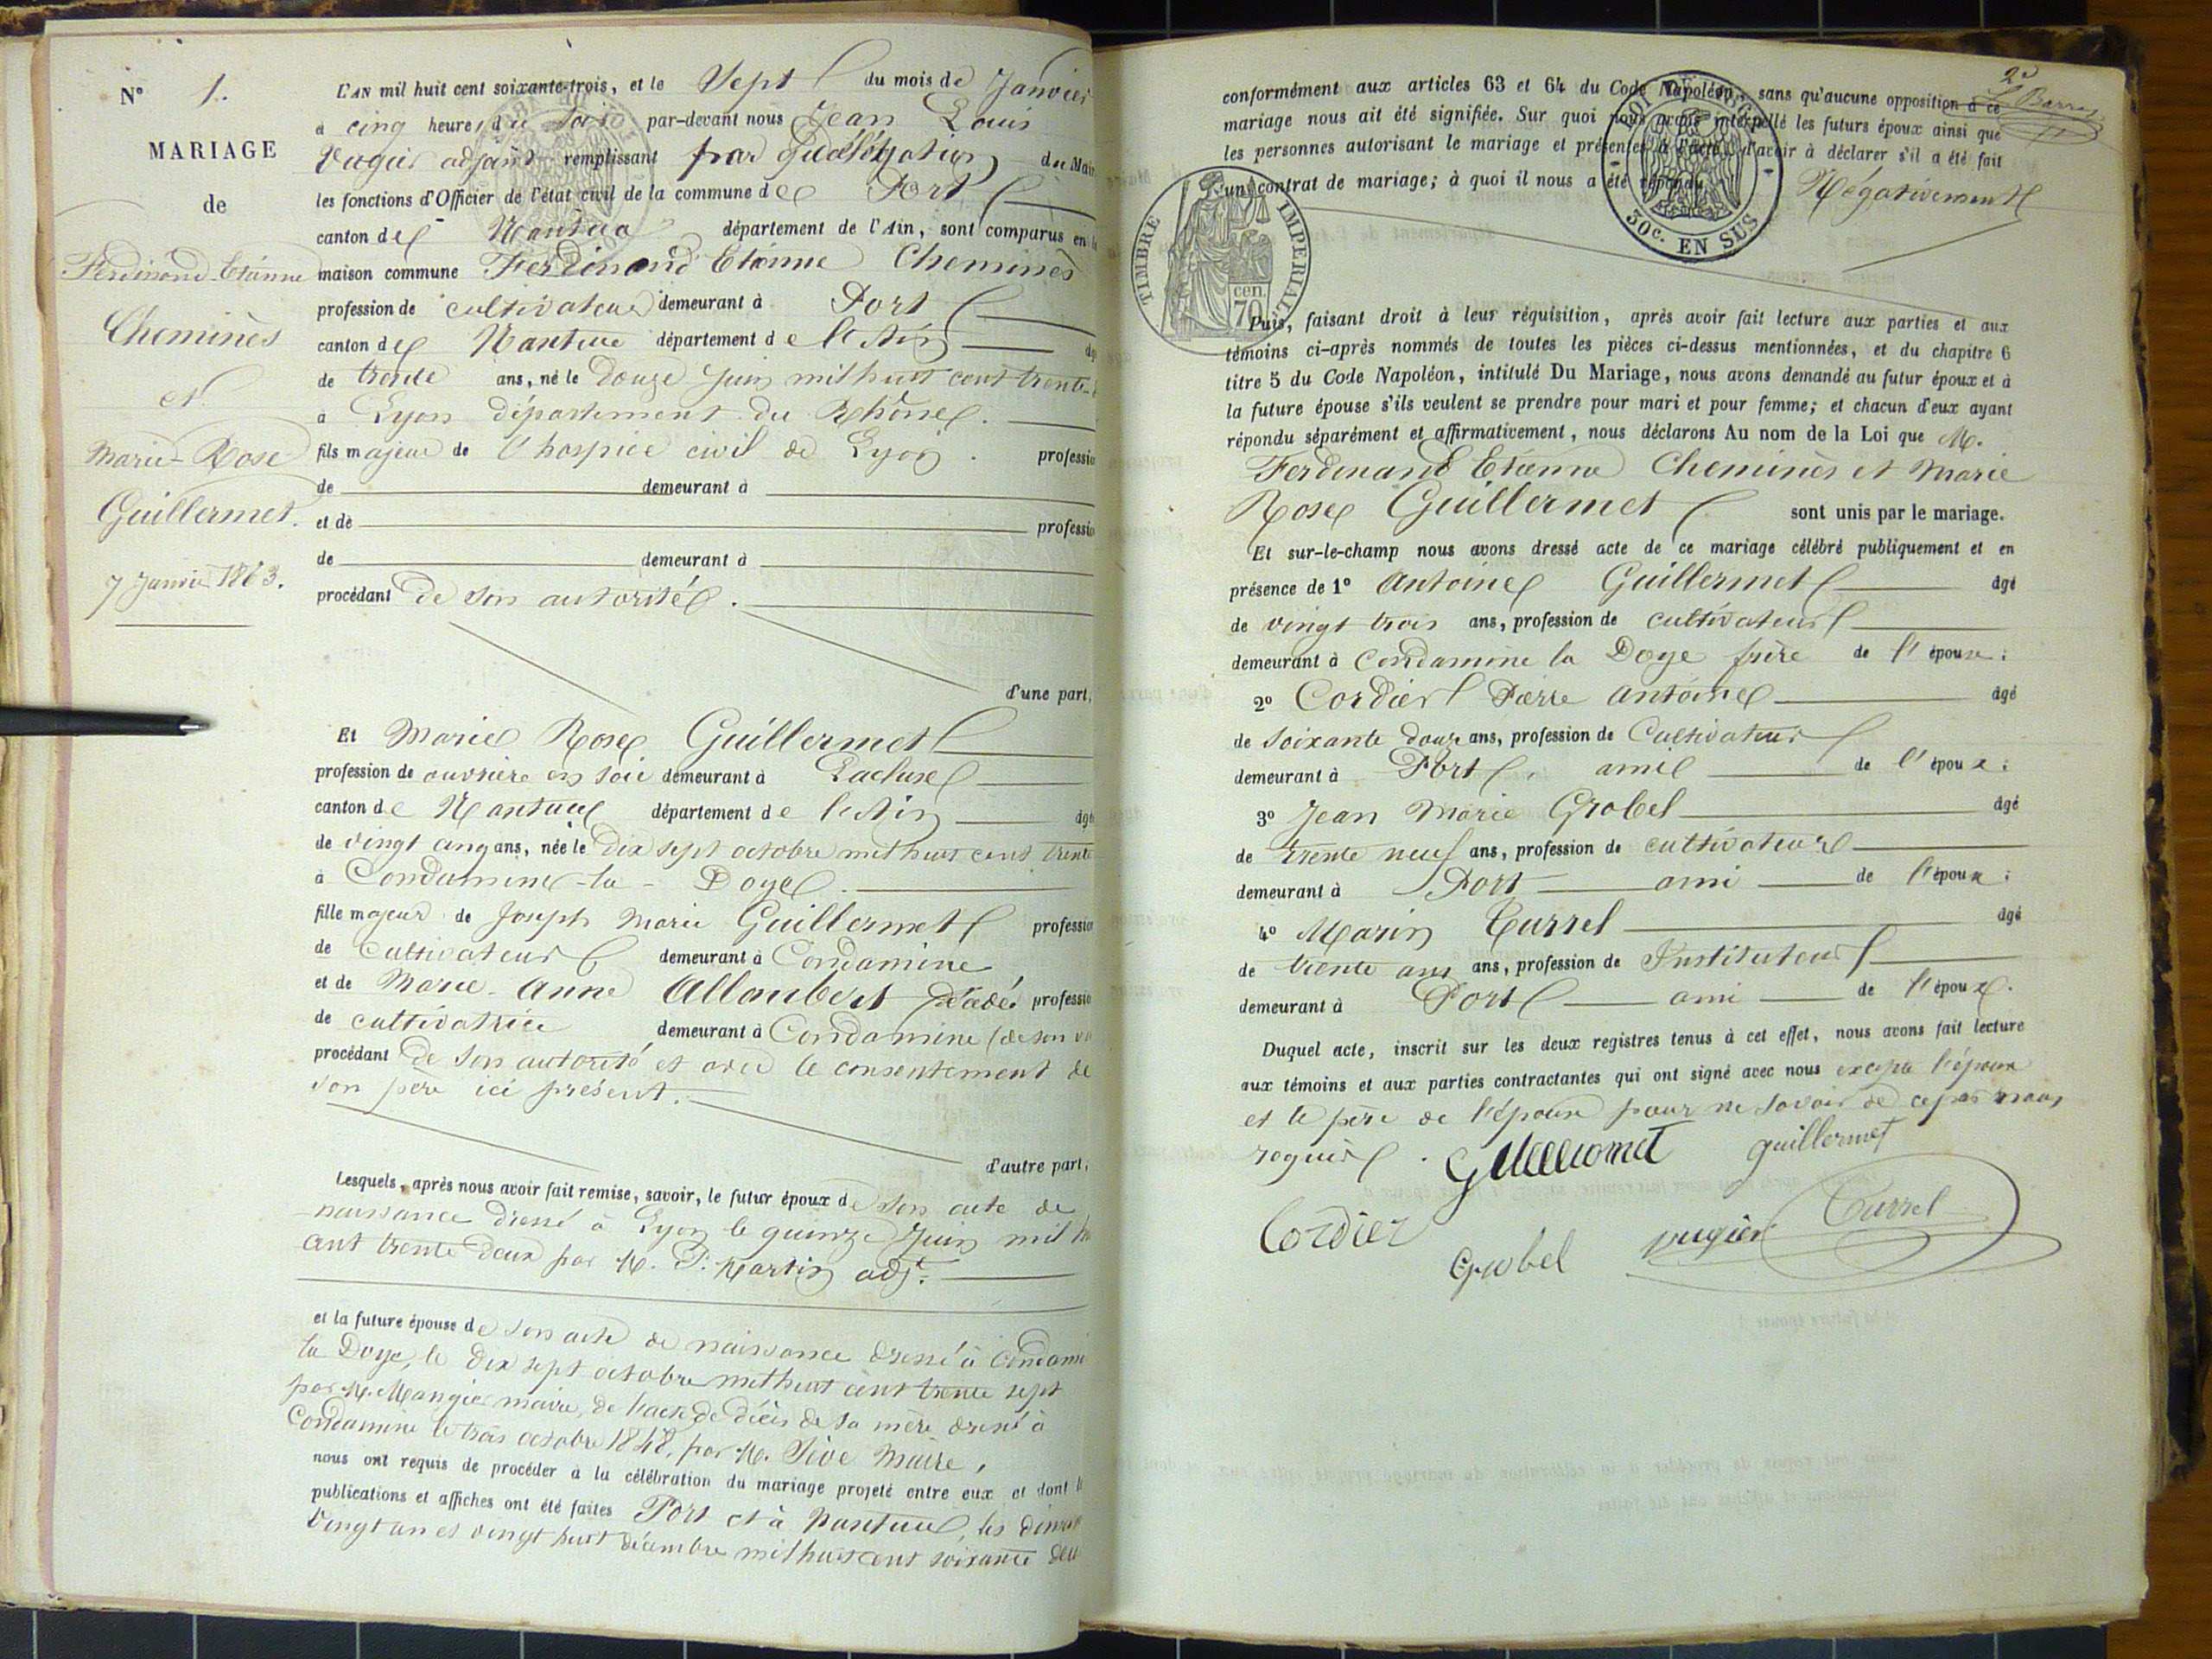 N° 1.
MARIAGE
de
Ferdinand Etienne
Cheminès
et
Marie-Rose
Guillermet.
7 Janvier 1863.
L'AN mil huit cent soixante-trois, et le Sept du mois de Janvier
à cinq heures du soir par-devant nous Jean Louis
adjoint remplissant par délégation du Mai
les fonctions d'Officier de l'état civil de la commune de Port
canton de Nantua département de l'Ain, sont comparus en l
maison commune Ferdinand Etienne Cheminès
profession de cultivateur demeurant à Port
canton de Nantua département de l'Ain âgé
de trente ans, né le Douze Juin mil huit cent trente-
à Lyon département du Rhône.
fils majeur de l'hospice civil de Lyon. professio
de demeurant à
et de professio
de demeurant à
procédant de son autorité.
d'une part,
Et Marie Rose Guillermet
profession de ouvrière en soie demeurant à Lacluse
canton de Nantua département de l'Ain âgé
de vingt cinq ans, née le Dix sept octobre mil huit cent trente
à Condamine-la-Doye.
fille majeure de Joseph Marie Guillermet professio
de Cultivateur demeurant à Condamine
et de Marie-Anne Allombert professio
de cultivatrice demeurant à Condamine (de son
procédant de son autorité et avec le consentement de
son père ici présent.
d'autre part,
Lesquels, après nous avoir fait remise, savoir, le futur époux de son acte de
naissance dressé à Lyon le quinze Juin mil h
cent trente deux par M. P. Martin adjt.
et la future épouse de son acte de naissance dressé à Condami
la Doye, le dix sept octobre mil huit cent trente sept
par M. Mangier maire, de l'acte de décès de sa mère dressé à
Condamine le trois octobre 1848, par M. Sève Maire,
nous ont requis de procéder à la célébration du mariage projeté entre eux et dont l
publications et affiches ont été faites Port et à Nantua, les diman
vingt un et vingt huit décembre mil huit cent soixante deu
2e
conformément aux articles 63 et 64 du Code Napoléon, sans qu'aucune opposition à ce
mariage nous ait été signifiée. Sur quoi nous avons interpellé les futurs époux ainsi que
les personnes autorisant le mariage et présentes à l'acte, d'avoir à déclarer s'il a été fait
un contrat de mariage; à quoi il nous a été répondu Négativement
30c. EN SUS
TIMBRE IMPERIAL
cen. 70
Puis, faisant droit à leur réquisition, après avoir fait lecture aux parties et aux
témoins ci-après nommés de toutes les pièces ci-dessus mentionnées, et du chapitre 6
titre 5 du Code Napoléon, intitulé Du Mariage, nous avons demandé au futur époux et à
la future épouse s'ils veulent se prendre pour mari et pour femme; et chacun d'eux ayant
répondu séparément et affirmativement, nous déclarons Au nom de la Loi que M.
Ferdinand Etienne Cheminès et Marie
Rose Guillermet sont unis par le mariage.
Et sur-le-champ nous avons dressé acte de ce mariage célébré publiquement et en
présence de 1° Antoine Guillermet âgé
de vingt trois ans, profession de cultivateur
demeurant à Condamine la Doye frère de l'épouse:
2° Cordier Pierre Antoine âgé
de soixante douze ans, profession de Cultivateur
demeurant à Port, ami de l'époux:
3° Jean Marie Grobel âgé
de trente neuf ans, profession de cultivateur
demeurant à Port ami de l'époux:
4° Marin Turrel âgé
de trente ans ans, profession de Instituteur
demeurant à Port ami de l'époux.
Duquel acte, inscrit sur les deux registres tenus à cet effet, nous avons fait lecture
aux témoins et aux parties contractantes qui ont signé avec nous excepté l'époux
et le père de l'épouse pour ne savoir de ce par nous
requis.
guillermet
Cordier
Grobel
vugier
Turrel